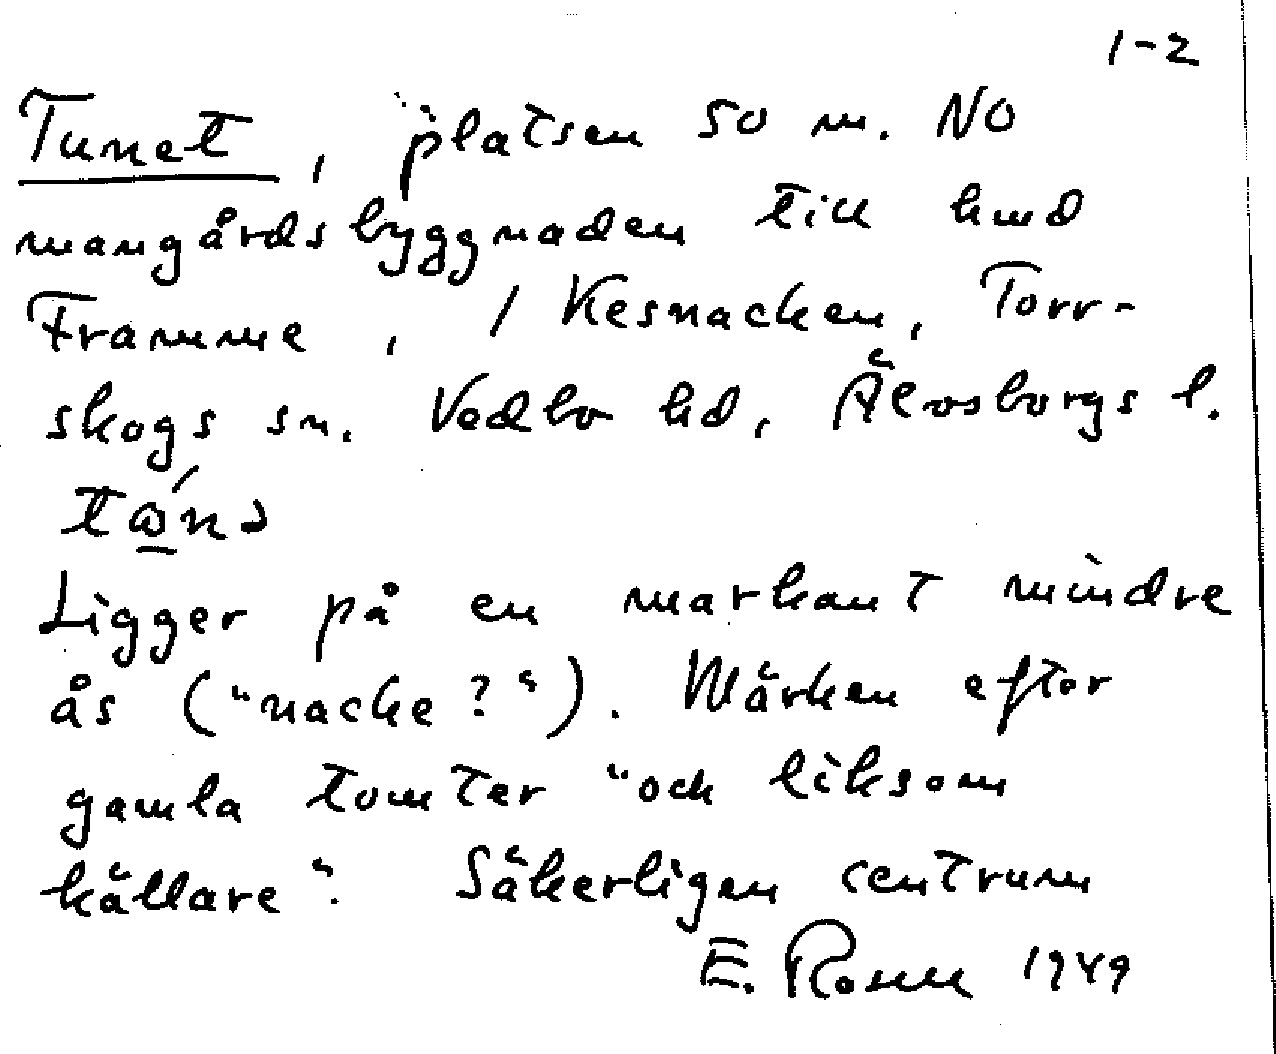 1-2
Tunet, platsen 50 m. NO
mangårdsbyggnaden till hmd
Framme, / Kesnacken, Torr-
skogs sn. Vedbo hd, Älvsborgs l.
Ligger på en markant mindre
ås ("nacke?"). Märken efter
gamla tomter "och liksom
källare". Säkerligen centrum
E. Rosell 1949